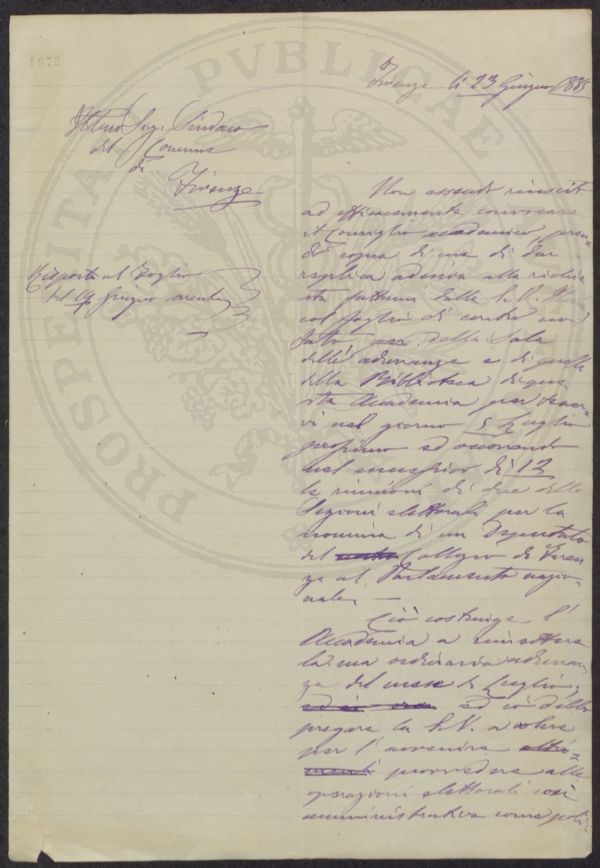 1672
Firenze li 23 Giugno 1885
Illmo Sig. Sindaco
del Comune
di
Firenze
Risposta al Foglio
del 19 Giugno corrente
Non essendo riuscito
ad efficacemente convocare
il Consiglio accademico
adesiva alla richie
sta fattami dalla S. V. Illma
col foglio di contro no
tato per della Sala
delle adunanze e di quella
della Biblioteca di que
sta Accademia per tener
vi nel giorno 5 Luglio
prossimo ed occorrendo
nel successivo dì 12
le riunioni di due delle
Sezioni elettorali per la
nomina di un Deputato
del Collegio di Firen
ze al Parlamento nazio
nale. —
Ciò costringe l'
Accademia a rimettere
la sua ordinaria adunan
za del mese di Luglio,
ed io debbo
pregare la S. V. a volere
per l'avvenire
provvedere alle
operazioni elettorali così
amministrative come poli
PROSPERITATI PVBLICAE